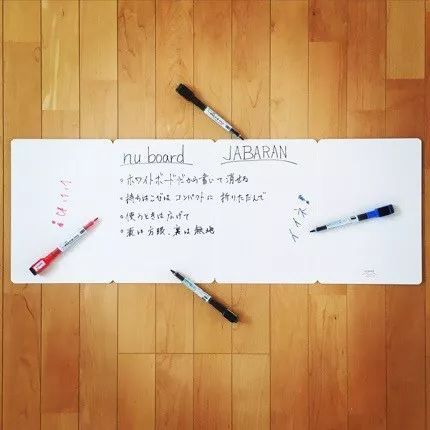 nu board JABARAN
・ホワイトボードだから書いて消せる
・持ちはこびは コンパクトに 折りたたんで
・使うときは広げて
・表は方眼、裏は無地
イイネ!